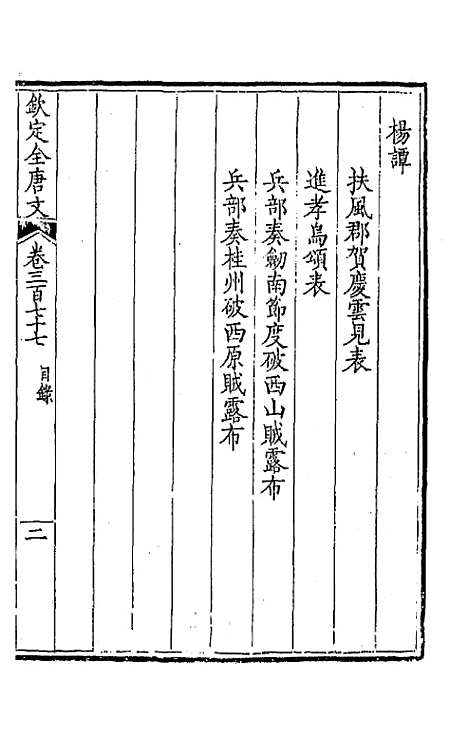 楊譚
扶風郡賀慶雲見表
進孝烏頌表
兵部奏劒南節度破西山賊露布
兵部奏桂州破西原賊露布
欽定全唐文
卷三百七十七
目錄
二